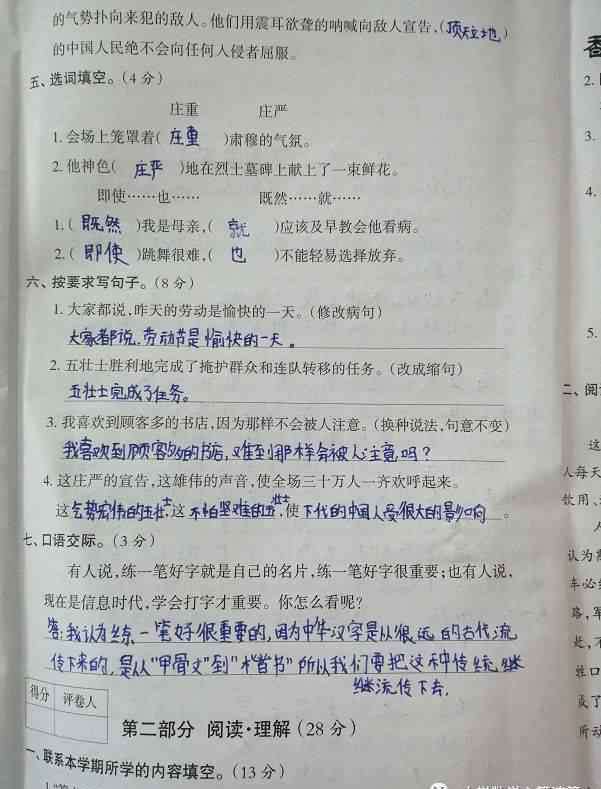 的气势扑向来犯的敌人。他们用震耳欲聋的呐喊向敌人宣告,(顶天立地)
的中国人民绝不会向任何入侵者屈服。
五、选词填空。(4分)
庄重 庄严
1.会场上笼罩着( 庄重 )肃穆的气氛。
2.他神色( 庄严 )地在烈士墓碑上献上了一束鲜花。
即使……也…… 既然……就……
1.( 既然 )我是母亲,( 就 )应该及早教会他看病。
2.( 即使 )跳舞很难,( 也 )不能轻易选择放弃。
六、按要求写句子。(8分)
1.大家都说,昨天的劳动是愉快的一天。(修改病句)
大家都说,劳动节是愉快的一天。
2.五壮士胜利地完成了掩护群众和连队转移的任务。(改成缩句)
五壮士完成了任务。
3.我喜欢到顾客多的书店,因为那样不会被人注意。(换种说法,句意不变)
我喜欢到顾客多的书店,难到那样会被人注意吗?
4.这庄严的宣告,这雄伟的声音,使全场三十万人一齐欢呼起来。
这气势宏伟的五壮士,这不怕坚难的五壮士,使下代的中国人受很大的影响。
七、口语交际。(3分)
有人说,练一笔好字就是自己的名片,练一笔好字很重要;也有人说,
现在是信息时代,学会打字才重要。你怎么看呢?
答:我认为练一笔好很重要的,因为中华汉字是从很远的古代流
传下来的,是从"甲骨文"到"楷书"所以我们要把这种传统继
继流传下去。
得分 评卷人
第二部分 阅读·理解(28分)
一、联系本学期所学的内容填空。(13分)
2.
3.
4.
5.
二、阅
这
人每天
饮用
认为
车必
路,军
处,不
胜口
反了
所动